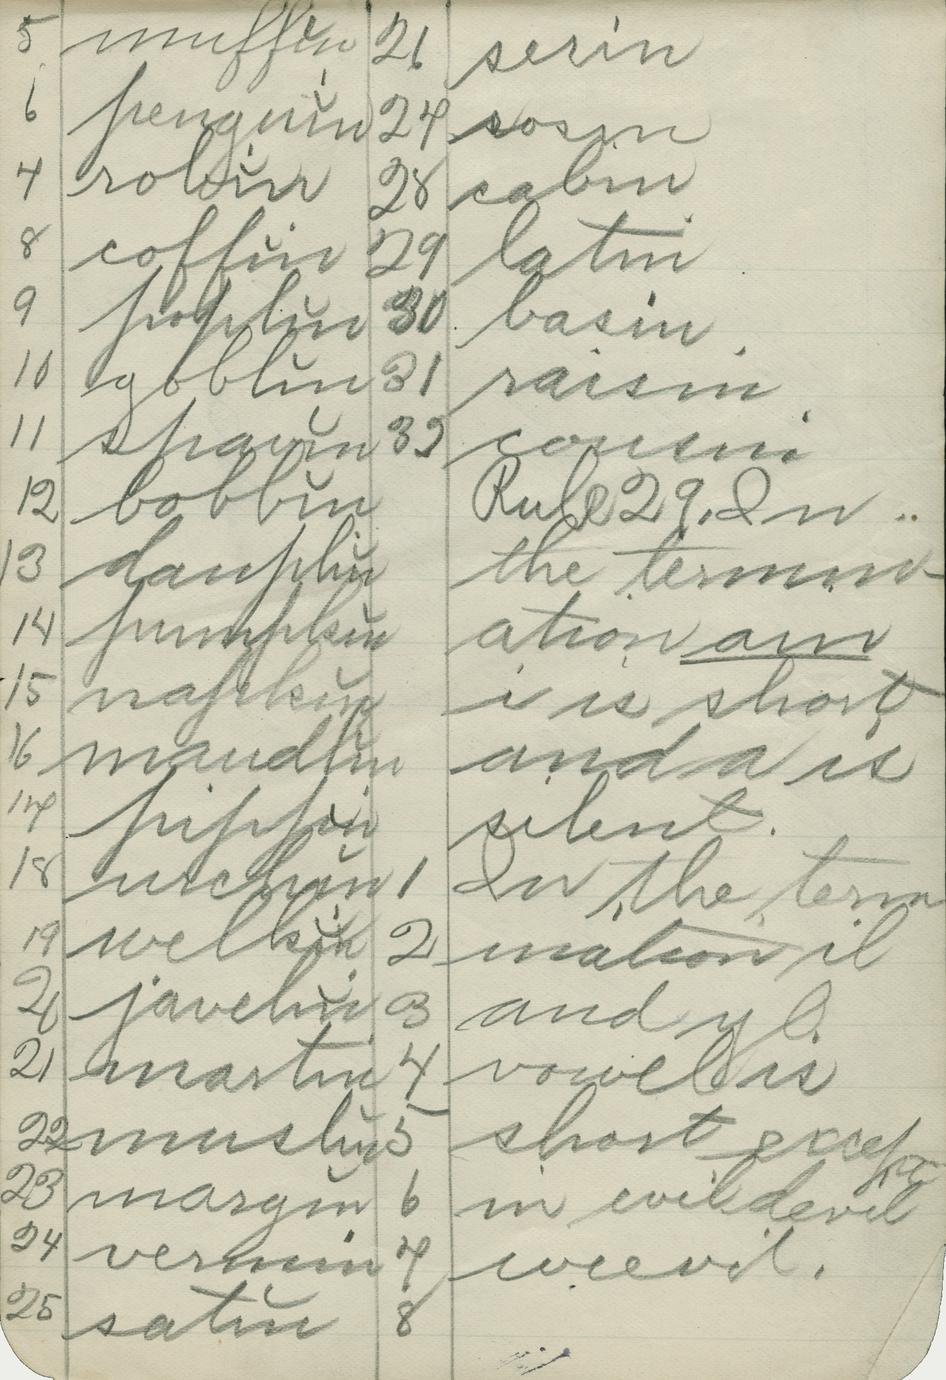 5 muffin
6 penguin
4 robin
8 coffin
9 poplin
10 goblin
11 spavin
12 bobbin
13 dauphin
14 pumpkin
15 napkin
16 maudlin
14 pippin
18 urchin
19 welkin
20 javelin
21 martin
22 muslin
23 margin
24 vermin
25 satin
21 serin
24 sosin
28 cabin
29 latin
30 basin
31 raisin
32 cousin
Rule 29. In
the termin-
ation ain
i is short
and a is
silent.
1 In the term
2 ination il
3 and yl
4 vowel is
5 short except
6 in evil devil
7 weevil.
8